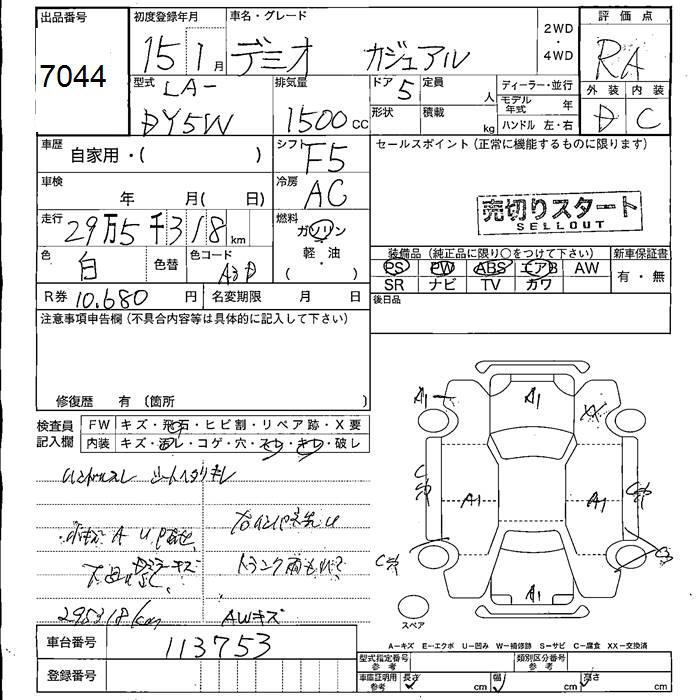 出品番号 初度登録年月 車名・グレード 2WD・4WD 評価点
7044 15 1月 デミオ カジュアル RA
型式 LA- 排気量 ドア 5 定員 人 ディーラー・並行 外装 内装
DY5W 1500cc 形状 積載 kg モデル年式 年 D C
ハンドル 左・右
車歴 自家用・( ) シフト F5 セールスポイント(正常に機能するものに限ります)
車検 年 月( 日) 冷房 AC
売切りスタート
SELLOUT
走行 29万5千318km 燃料 ガソリン
軽・油
( ・ )
色 白 色替 色コード A3D
装備品(純正品に限り○をつけて下さい) 新車保証書
PS PW ABS エアB AW 有・無
SR ナビ TV カワ
R券 10.680円 名変期限 月 日 後日品
注意事項申告欄(不具合内容等は具体的に記入して下さい)
修復歴 有(箇所 )
検査員記入欄 FW キズ・飛石・ヒビ割・リペア跡・X要
内装 キズ・汚レ・コゲ・穴・スレ・キレ・破レ
A1 A1 XX
C A1 A1 C
C C
A1
295318km AWキズ
スペア
A−キズ E−エクボ U−凹み W−補修跡 S−サビ C−腐食 XX−交換済
車台番号 113753
登録番号
型式指定番号 参考 類別区分番号 参考
車庫証明用 参考 長さ cm 幅 cm 高さ cm